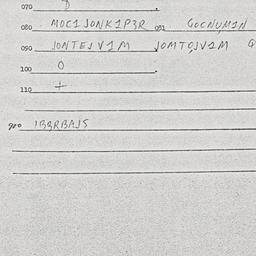 070 D
080 MOC1JONK1P3R 081 GOCNUM1N
090 JONTEJV1M JOMTOJV1M
100 O
110 +
990 1B3RBAJ5